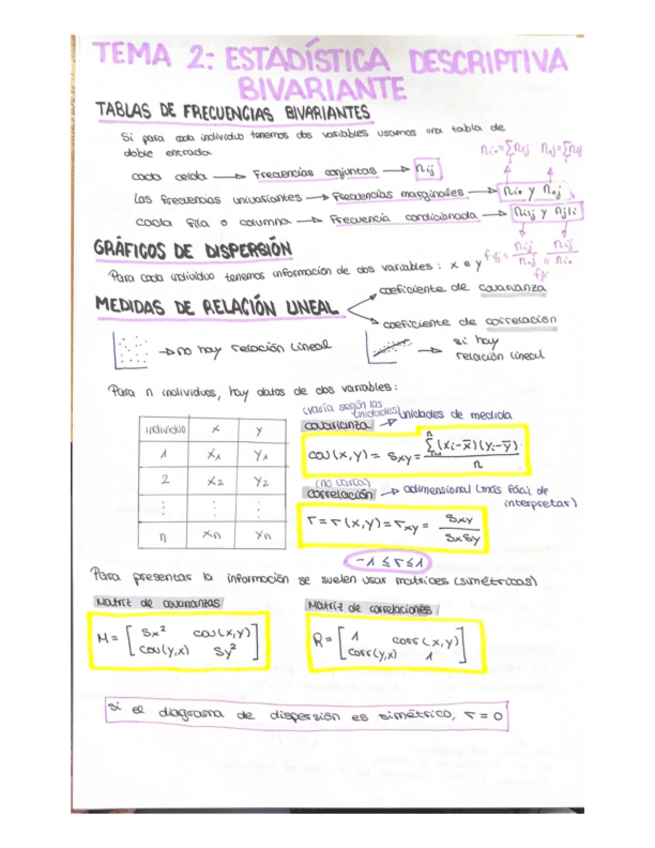 TEMA 2: ESTADÍSTICA DESCRIPTIVA
BIVARIANTE
TABLAS DE FRECUENCIAS BIVARIANTES
Si para cada individuo tenemos dos variables usamos una tabla de
doble entrada
ni. = Σnij n.j = Σnij
cada celda → Frecuencias conjuntas → nij
Las frecuencias univariantes → Frecuencias marginales → ni. y n.j
cada fila o columna → Frecuencia condicionada → ni|j y nj|i
GRÁFICOS DE DISPERSIÓN
Para cada individuo tenemos información de dos variables: x e y
coeficiente de covarianza
MEDIDAS DE RELACIÓN LINEAL
coeficiente de correlación
→ no hay relación lineal
→ si hay
relación lineal
Para n individuos, hay datos de dos variables:
(varía según las
unidades)
covarianza → unidades de medida
individuo x y
1 x1 y1
2 x2 y2
⋮ ⋮ ⋮
n xn yn
cov(x,y) = sxy = Σ(xi-x̄)(yi-ȳ) / n
(no varía)
correlación → adimensional (más fácil de
interpretar)
r = r(x,y) = rxy = sxy / sxsy
-1 ≤ r ≤ 1
Para presentar la información se suelen usar matrices (simétricas)
Matriz de covarianzas
Matriz de correlaciones
M = [ sx² cov(x,y)
cov(y,x) sy² ]
R = [ 1 corr(x,y)
corr(y,x) 1 ]
si el diagrama de dispersión es simétrico, r = 0